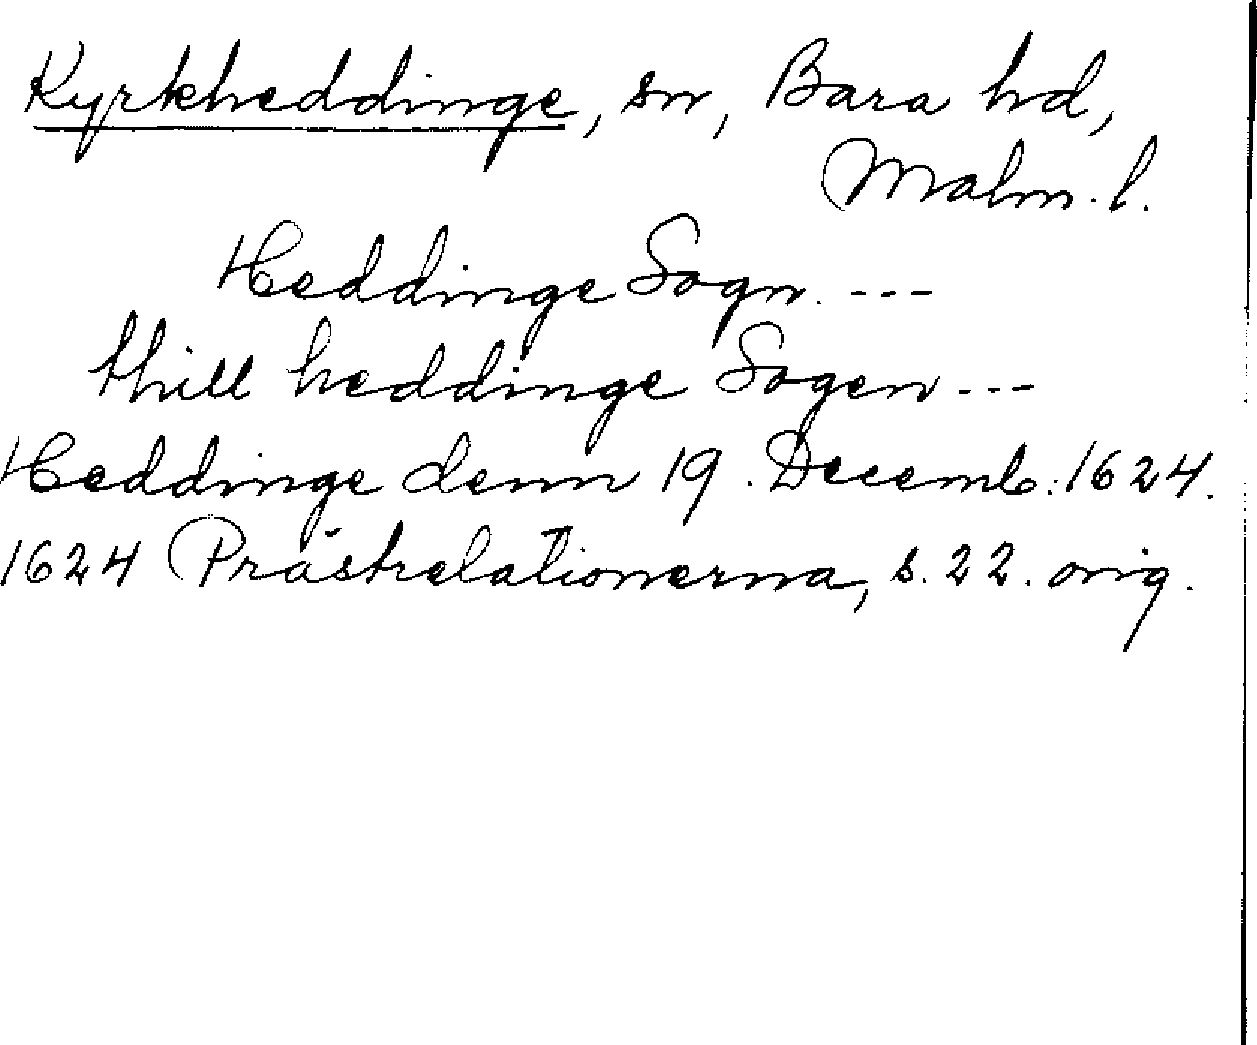 Kyrkheddinge, sn, Bara hd,
Malm. l.
Heddinge Sogn. ---
thill heddinge Sogen ---
Heddinge denn 19. Decemb: 1624.
1624 Prästrelationerna, s. 22. orig.